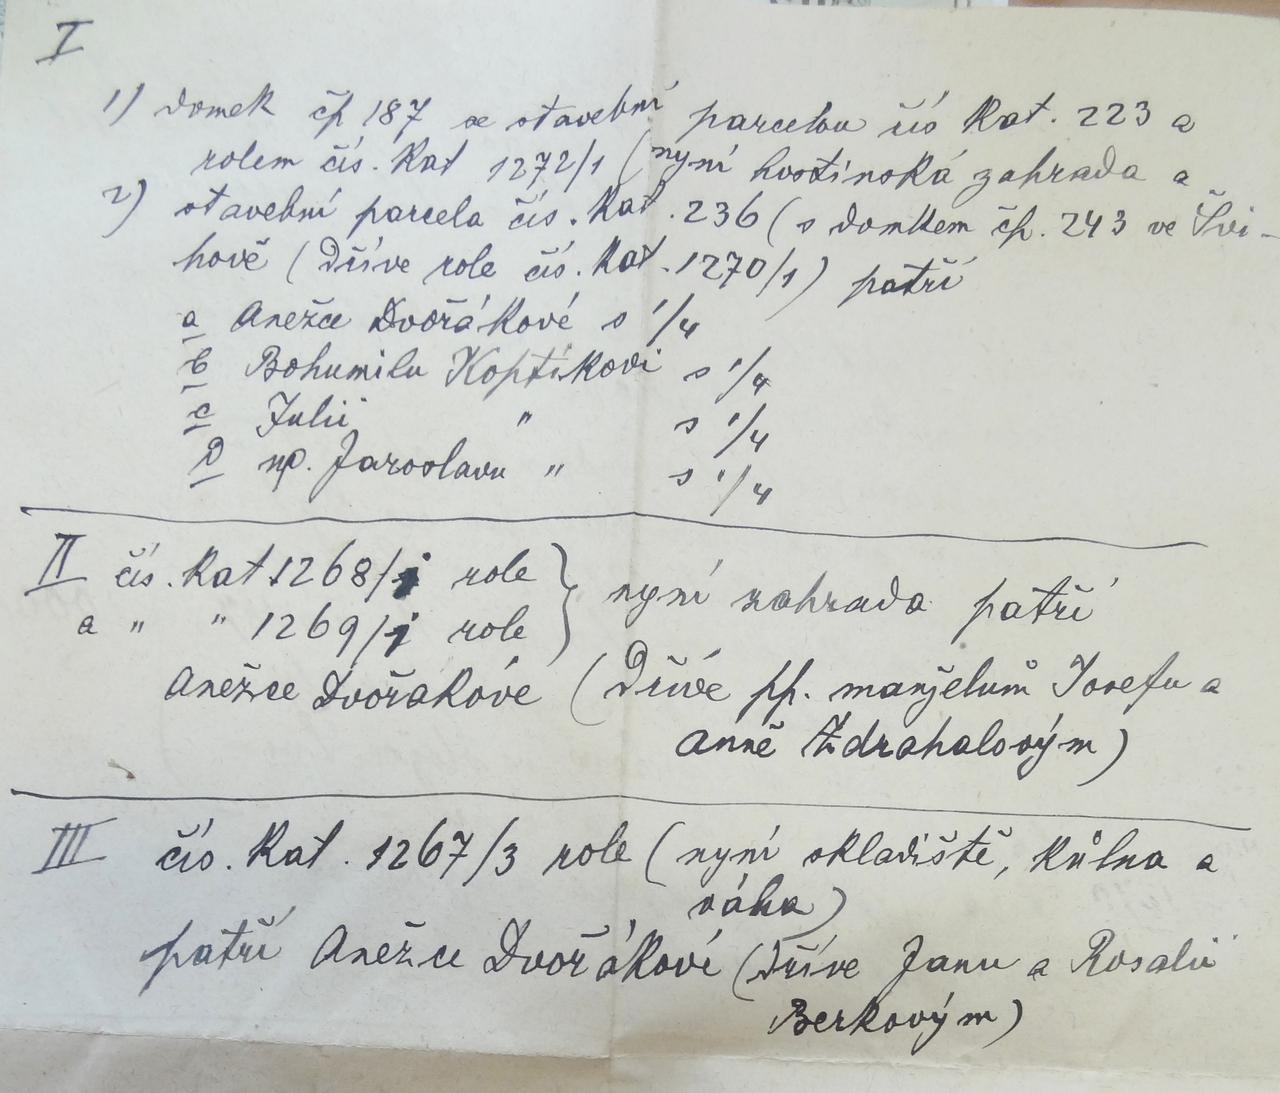 I
1) domek čp 187 se stavební parcelou čís Kat. 223 a
rolem čís. Kat 1272/1 (nyní hostinská zahrada a
2) stavební parcela čís. Kat. 236 (s domkem čp. 243 ve Švi-
hově (dříve role čís. Kat. 1270/1) patří
a Anežce Dvořákové s 1/4
b Bohumilu Koptíkovi s 1/4
c Julii " s 1/4
d np. Jaroslavu " s 1/4
II čís. Kat 1268/1 role } nyní zahrada patří
a " " 1269/1 role
Anežce Dvořákové (Dříve pp. manželům Josefu a
Anně Zdrahalovým)
III čís. Kat. 1267/3 role (nyní skladiště, kůlna a
váha)
patří Anežce Dvořákové (dříve Janu a Rosalii
Berkovým)